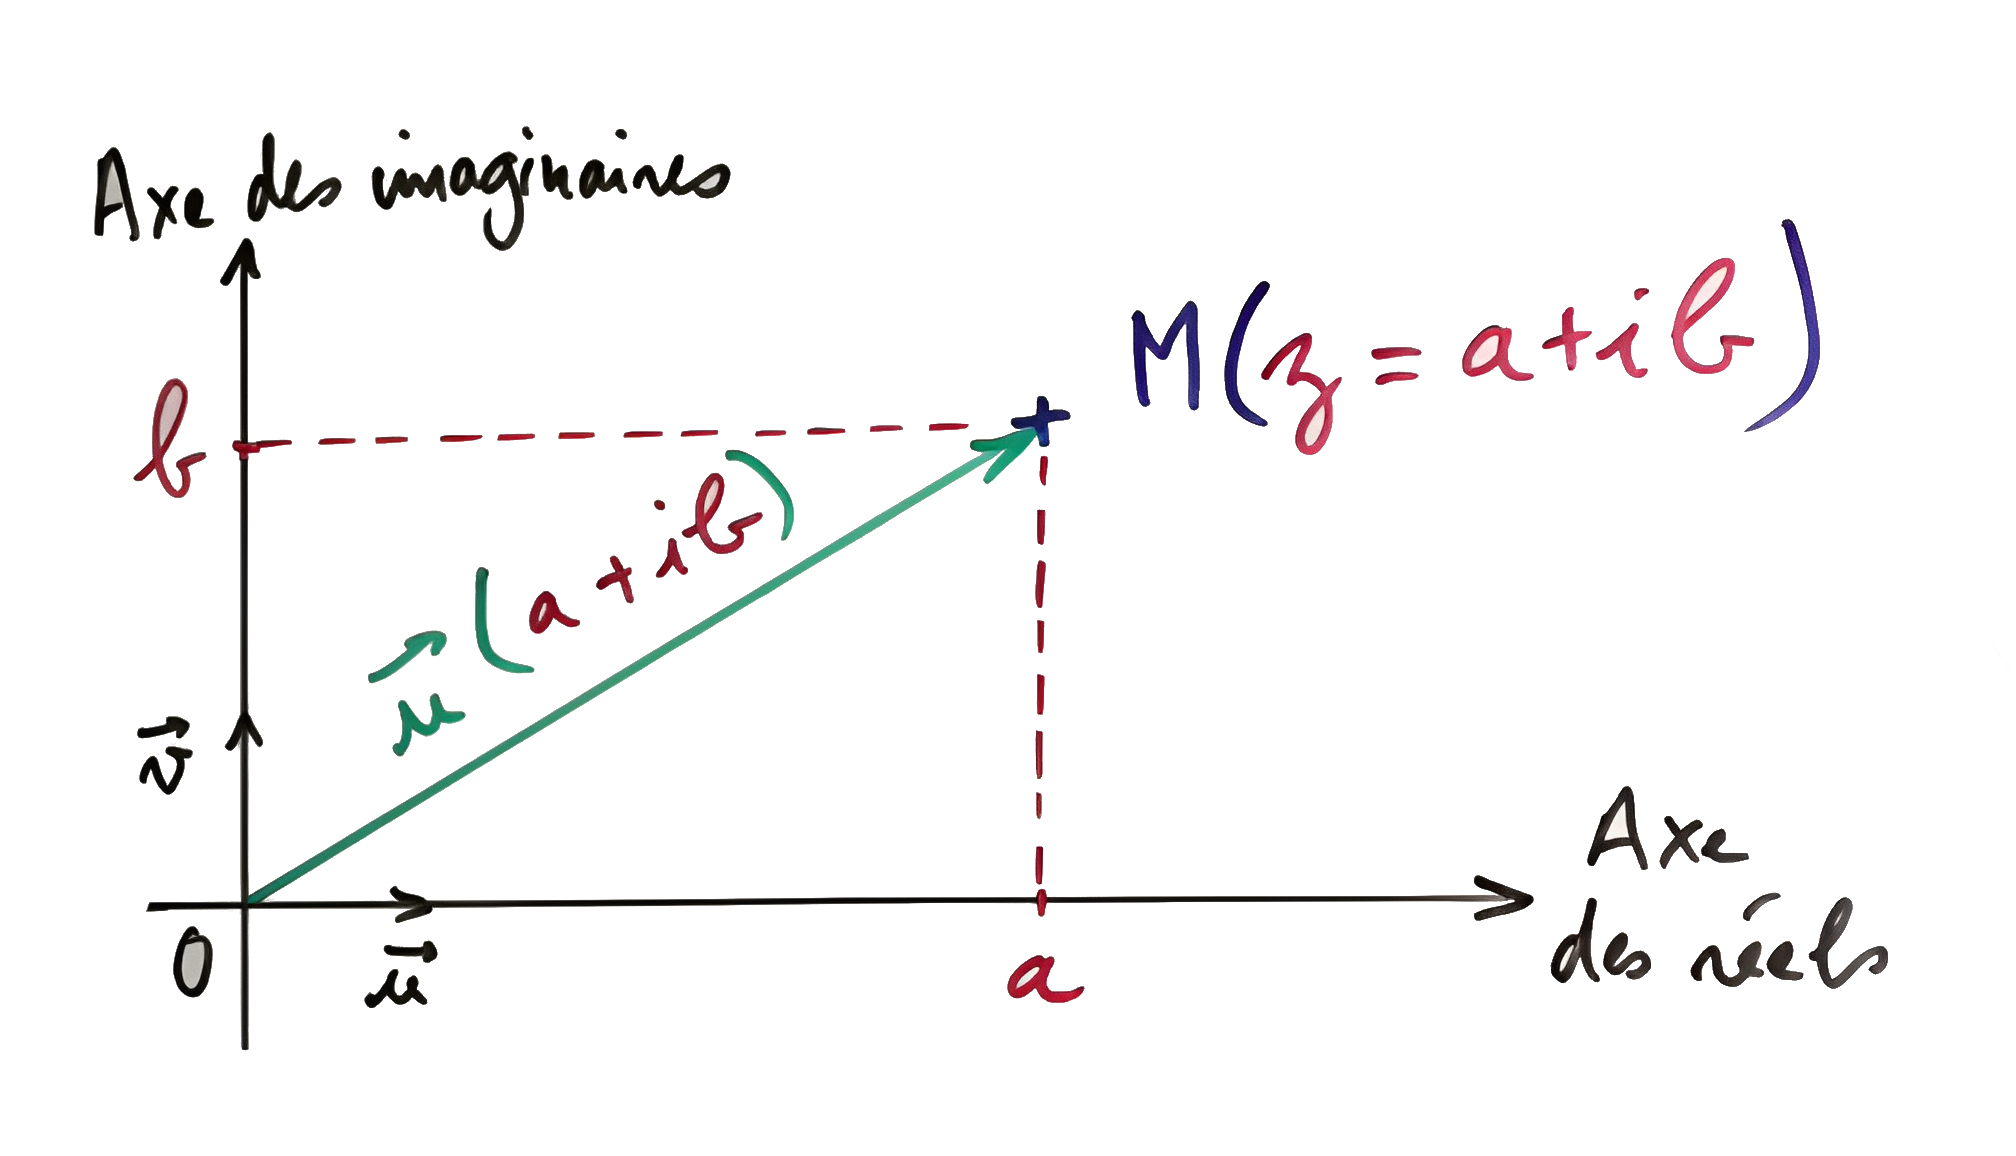 Axe des imaginaires
M(z = a+ib)
b
u⃗(a+ib)
v⃗
Axe
des réels
0
u⃗
a